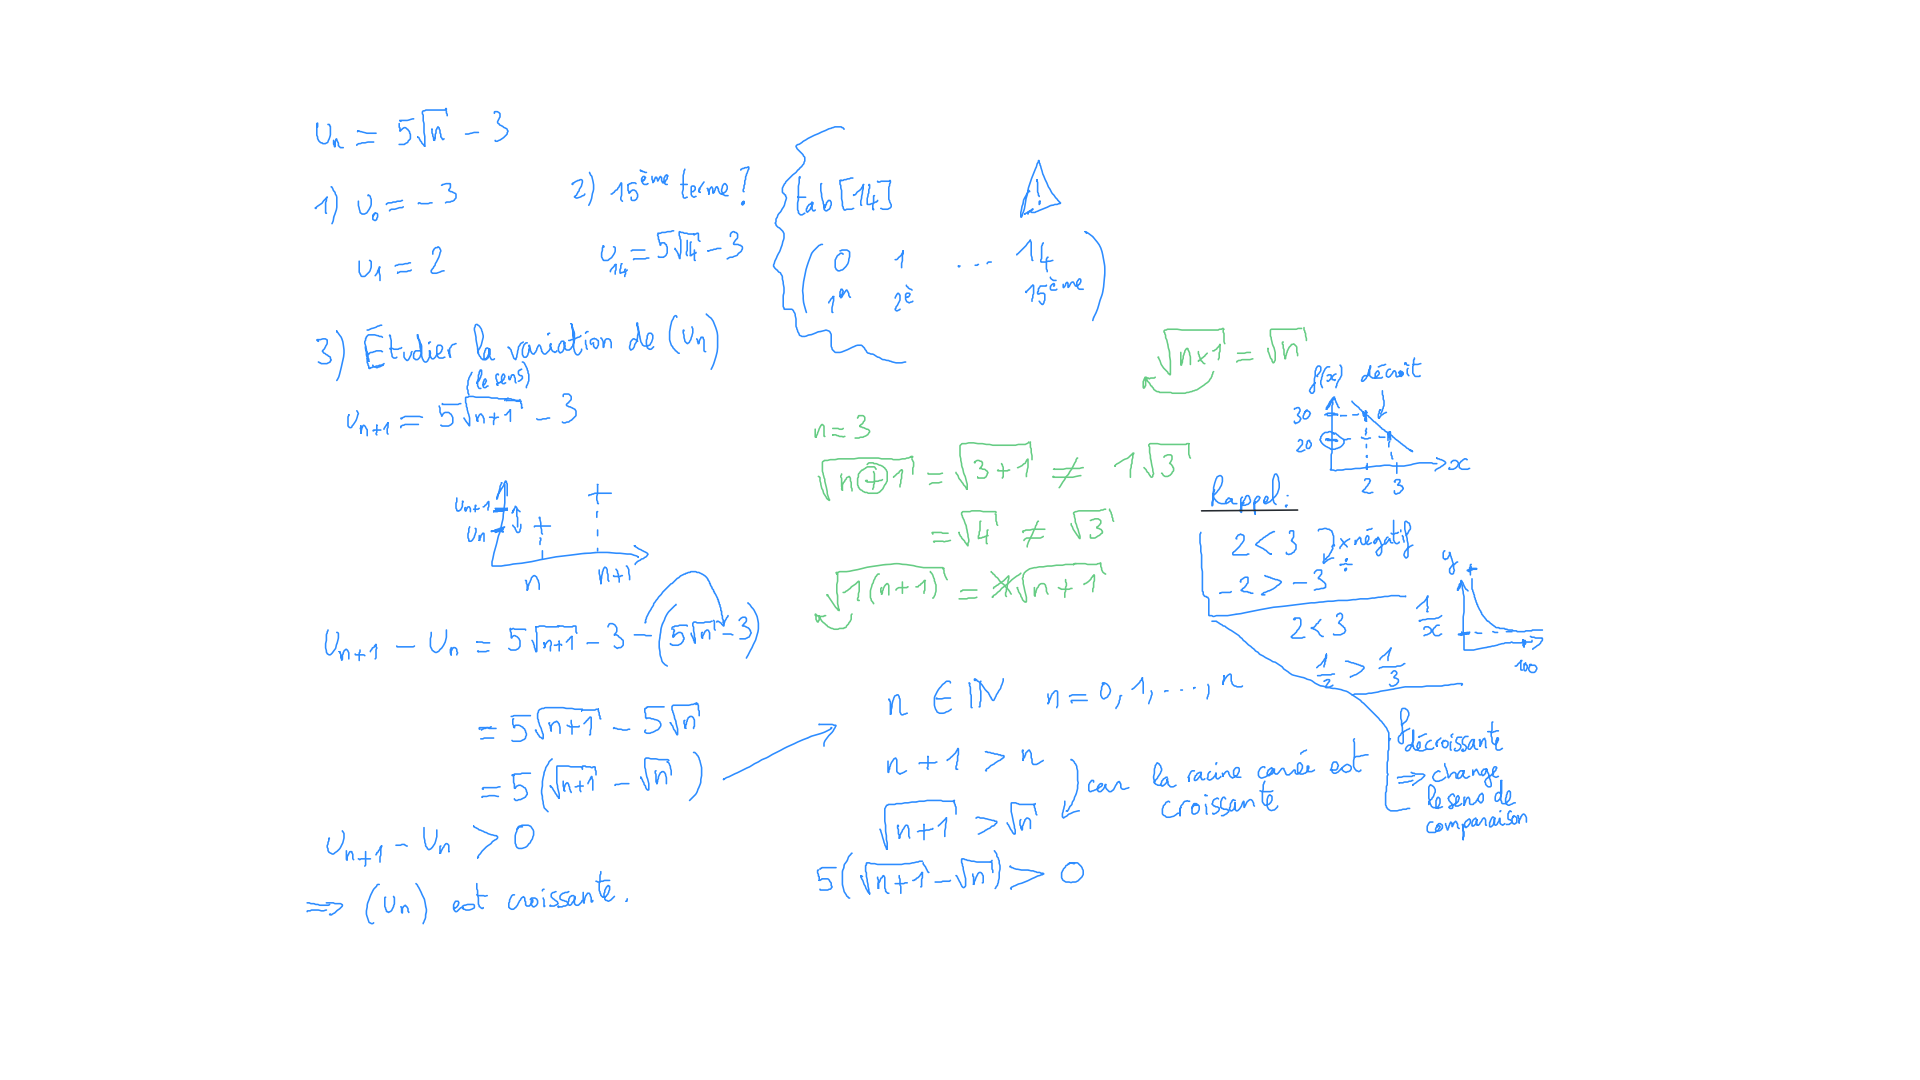 Uₙ = 5√n - 3
1) U₀ = -3
U₁ = 2
2) 15ème terme ?
U₁₄ = 5√14 - 3
tab[14]
!
0 1 ... 14
1er 2è 15ème
3) Étudier la variation de (Uₙ)
(le sens)
Uₙ₊₁ = 5√(n+1) - 3
Uₙ₊₁
Uₙ
n n+1
Uₙ₊₁ - Uₙ = 5√(n+1) - 3 - (5√n - 3)
= 5√(n+1) - 5√n
= 5(√(n+1) - √n)
Uₙ₊₁ - Uₙ > 0
⇒ (Uₙ) est croissante.
√(n×1) = √n
n = 3
√(n+1) = √(3+1) ≠ 1√3
= √4 ≠ √3
√(1(n+1)) = 1√(n+1)
n ∈ ℕ n = 0, 1, ..., n
n + 1 > n
√(n+1) > √n
car la racine carrée est
croissante
5(√(n+1) - √n) > 0
f(x) décroit
30
20
x
2 3
Rappel :
2 < 3 × négatif
÷
-2 > -3
2 < 3
1/2 > 1/3
y
1/x
100
f décroissante
⇒ change
le sens de
comparaison